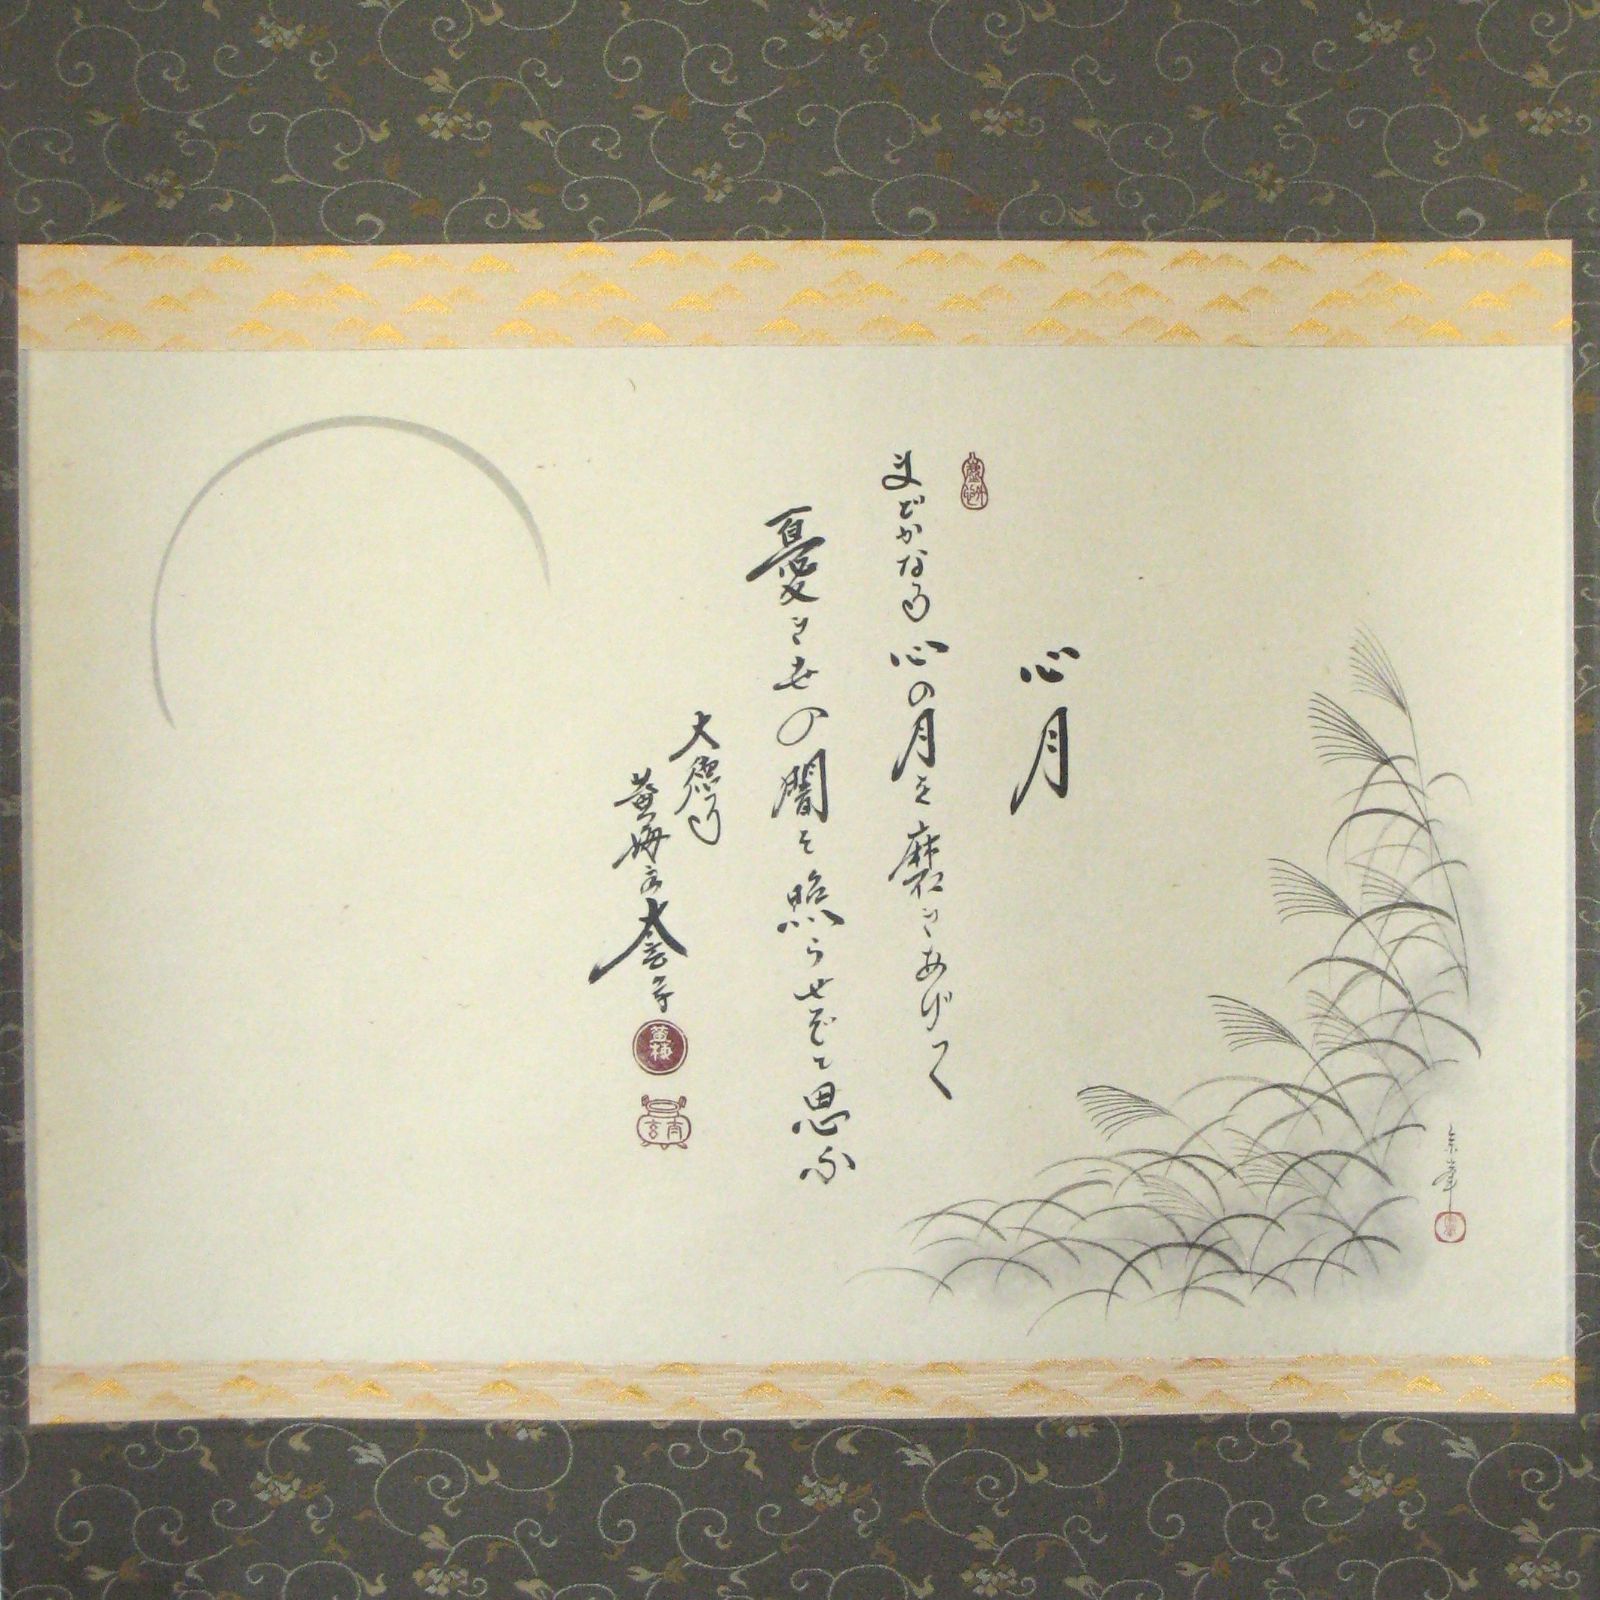 心月
まどかなる心の月を磨きあげて
憂き世の闇を照らせどて思ふ
大徳寺
黄梅院 太玄子
黄梅